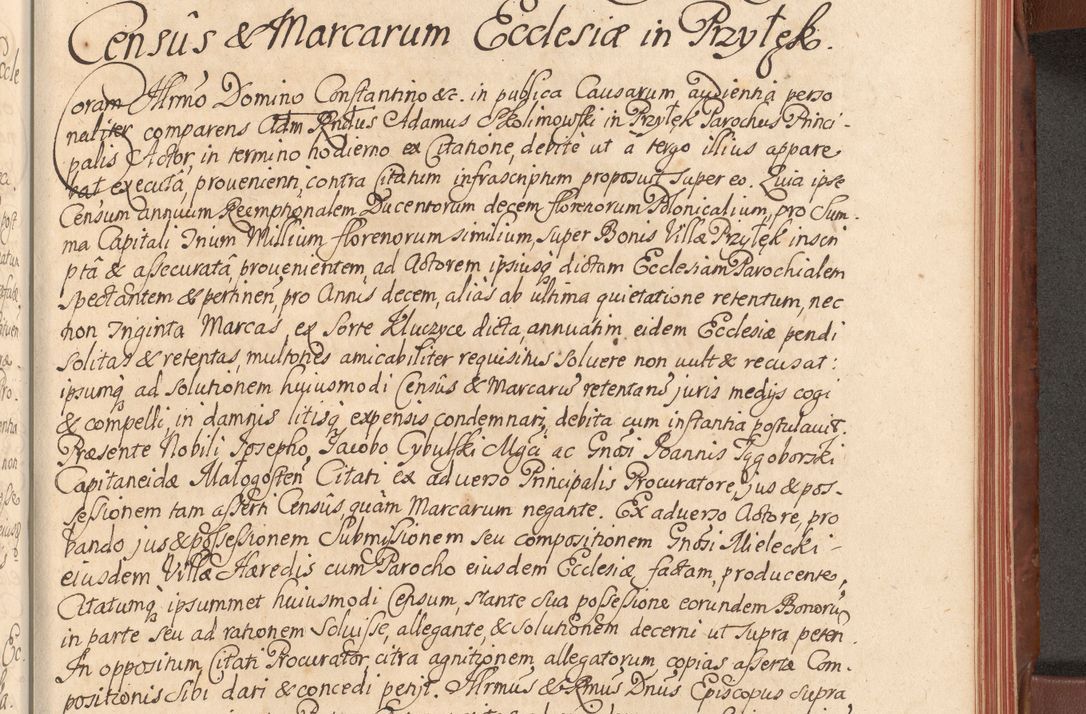 Censûs & Marcarum Ecclesiæ in Przyłęk.
Coram Illrmo Domino Constantino &c. in publica Causarum audientiâ perso
naliter comparens Adm Rndus Adamus Skolimowski in Przyłęk Parochus Princi-
palis Actor, in termino hodierno ex Citatione, debitè ut â tergo illius appare
bat executâ, provenienti, contra Citatum infrascriptum proposuit super eo. Quia ipse
Censum annuum Reemptionalem Ducentorum decem florenorum Polonicalium, pro Sum-
ma Capitali Trium Millium florenorum similium, super Bonis Villæ Przyłęk inscri
ptâ & assecuratâ, provenientem, ad Actorem ipsiusq dictam Ecclesiam Parochialem
spectantem & pertinen, pro Annis decem, aliàs ab ultima quietatione retentum, nec
non Triginta Marcas, ex Sorte Kluczyce dicta, annuatim eidem Ecclesiæ pendi
solitas & retentas, multoties amicabiliter requisitus solvere non vult & recusat:
ipsumq ad solutionem huiusmodi Censûs & Marcarū retentarū juris medijs cogi
& compelli, in damnis litisq expensis condemnari, debita cum instantia postulavit.
Præsente Nobili Josepho, Jacobo Cybulski Mgci ac Gnosi Joannis Tęgoborski
Capitaneidæ Małogosten Citati ex adverso Principalis Procuratore, jus & pos-
sessionem tam asserti Censûs, quàm Marcarum negante. Ex adverso Actore, pro
bando jus & possessionem Submissionem seu compositionem Gnosi Mielecki -
eiusdem Villæ Hæredis cum Parocho eiusdem Ecclesiæ factam, producente,
Citatumq ipsummet huiusmodi Censum, stante sua possessione eorundem Bonorū
in parte seu ad rationem solvisse, allegante, & solutionem decerni ut supra peten
In oppositum, Citati Procurator, citra agnitionem allegatorum copias assertæ Com-
positionis sibi dari & concedi penjt. Illrmus & Rmus Dnus Episcopus supra